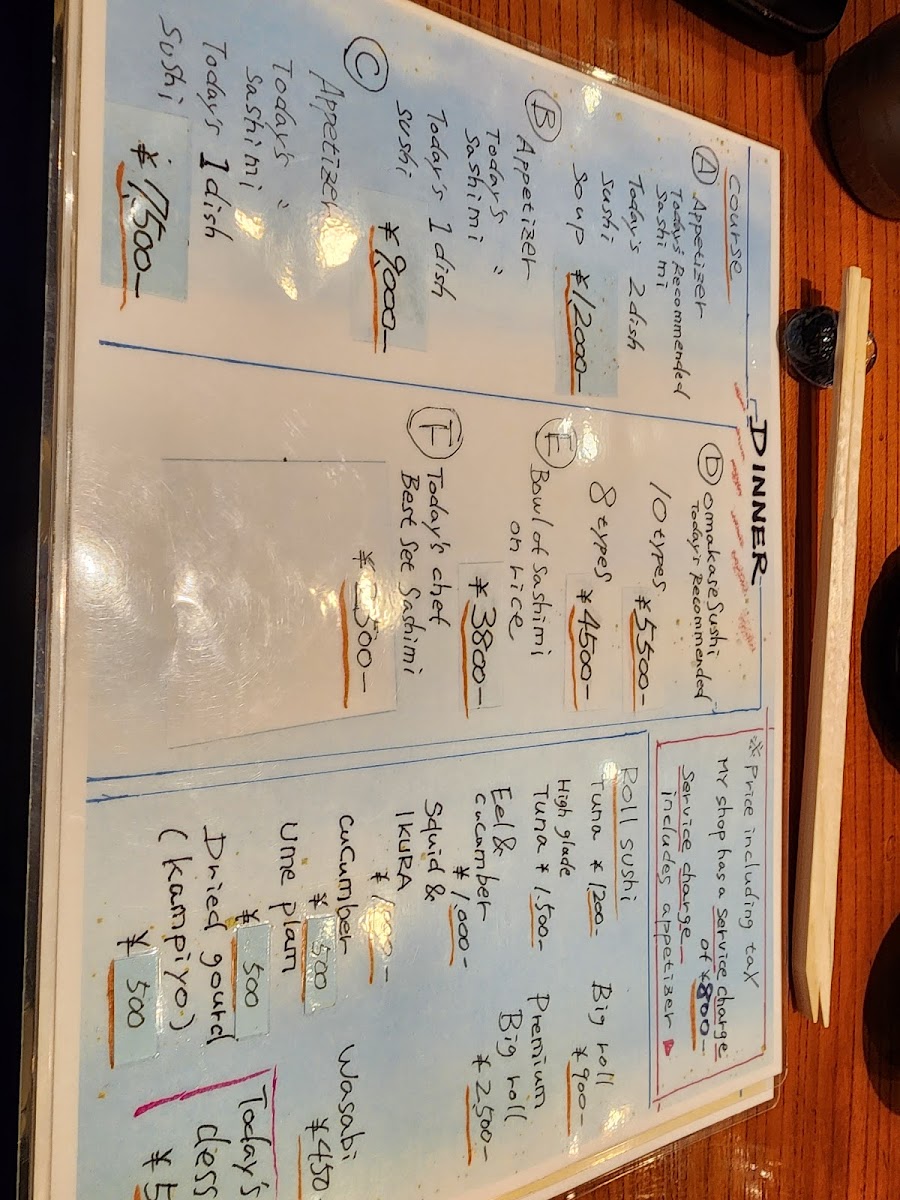 DINNER
course
Ⓐ Appetizer
Today's Recommended
Sashimi
Today's 2 dish
Sushi
Soup ¥12000-
Ⓑ Appetizer
Today's "
Sashimi
Today's 1 dish
Sushi
¥9,000-
Ⓒ
Appetizer
Today's "
Sashimi
Today's 1 dish
Sushi
¥7,500-
Ⓓ omakase sushi
Today's Recommended
10 types ¥5500-
8 types ¥4500-
Ⓔ Bowl of Sashimi
on rice
¥3800-
Ⓕ Today's chef
Best set Sashimi
500-
※ Price including tax
MY shop has a service charge
of ¥800-
Service charge
includes appetizer
Roll sushi
Tuna ¥1200-
High glade
Tuna ¥1,500-
Eel &
cucumber
¥1,000-
Squid &
IKURA
cucumber
¥500
Ume plam
¥500
Dried gourd
(kampiyo)
¥500
Big roll
¥900-
Premium
Big roll
¥2,500-
Wasabi
¥450
Today's
dess
¥5